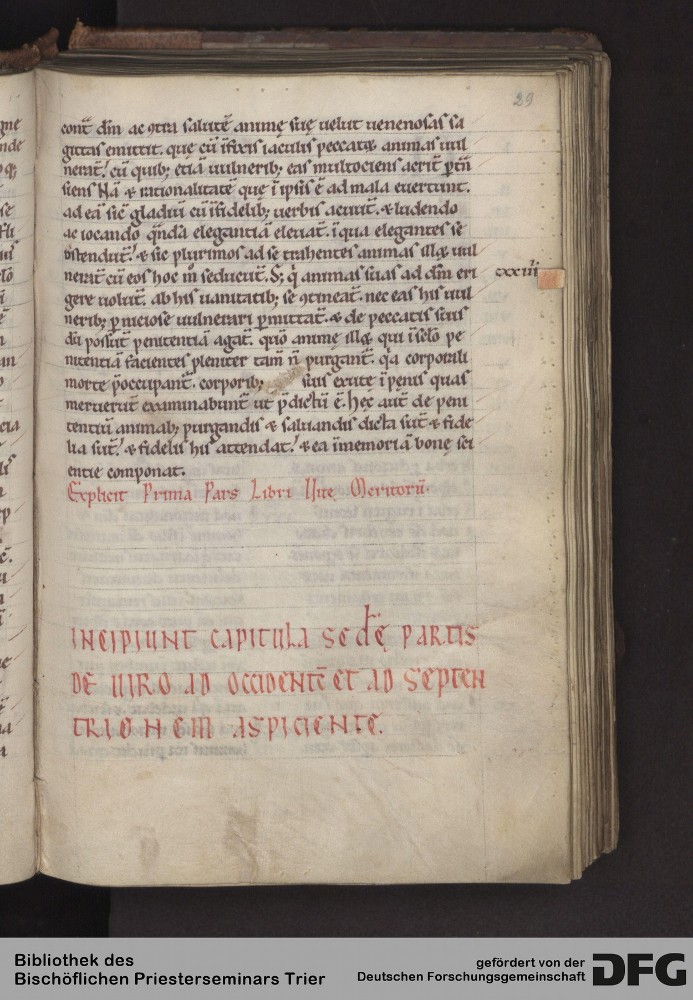 29
cont̄ dm̄ ac ꝯtra salutē animę suę uelut uenenosas sa
gittas emittit. que cū īfixis iaculis peccatoꝝ animas uul
nerat̄. cū quib; etiā uulnerib; eas multociens aerit̄
siens Nā & rationalitatē que ī ipsis ē ad mala euertunt.
ad eā sic̄ gladiū cū īfidelib; uerbis acuūt. & ludendo
ac iocando qūda elegantiā eleuāt. ī qua elegantes se
ostendūt. & sic plurimos ad se trahentes animas illoꝝ uul
nerāt cū eos hoc m̊ seducūt. S; q̇ animas suas ad dm̄ eri
cxxiii
gere uolūt. ab his uanitatib; se ꝯtineāt. nec eas his uul
nerib; ꝑniciose uulnerari ꝑmittāt. & de peccatis suis
dū possūt penitentiā agāt. qm̄o animę illoꝝ qui ī sclo pe
nitentiā facientes pleniter tam̄ n̄ purgant̄. q̇a corporali
morte p̄occupant̄. corporib; suis exutę ī penis quas
meruerūt examinabunt̄ ut p̄dictū ē. Hęc aūt de peni
tentiū animab; purgandis & saluandis dicta sūt & fide
lia sūt. & fidelis his attendat. & ea ī memoriā bonę sci
entie componat.
Explicit Prima Pars Libri Uite Meritorū.
INCIPIUNT CAPITULA SEC̄DĘ PARTIS
DE UIRO AD OCCIDENTĒ ET AD SEPTEN
TRIONEM ASPICIENTE.
Bibliothek des
Bischöflichen Priesterseminars Trier
gefördert von der
Deutschen Forschungsgemeinschaft
DFG